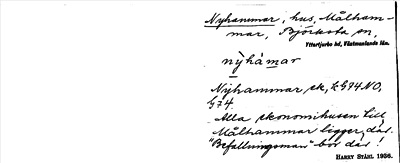 Nyhammar, hus, Målham-
mar, Björksta sn,
Yttertjurbo hd, Västmanlands län.
nỳhámar
Nyhammar ek, Z G74 NO,
G74
Alla ekonomihusen till
Målhammar ligger där.
"Befallningsman" bor där!
HARRY STÅHL 1936.